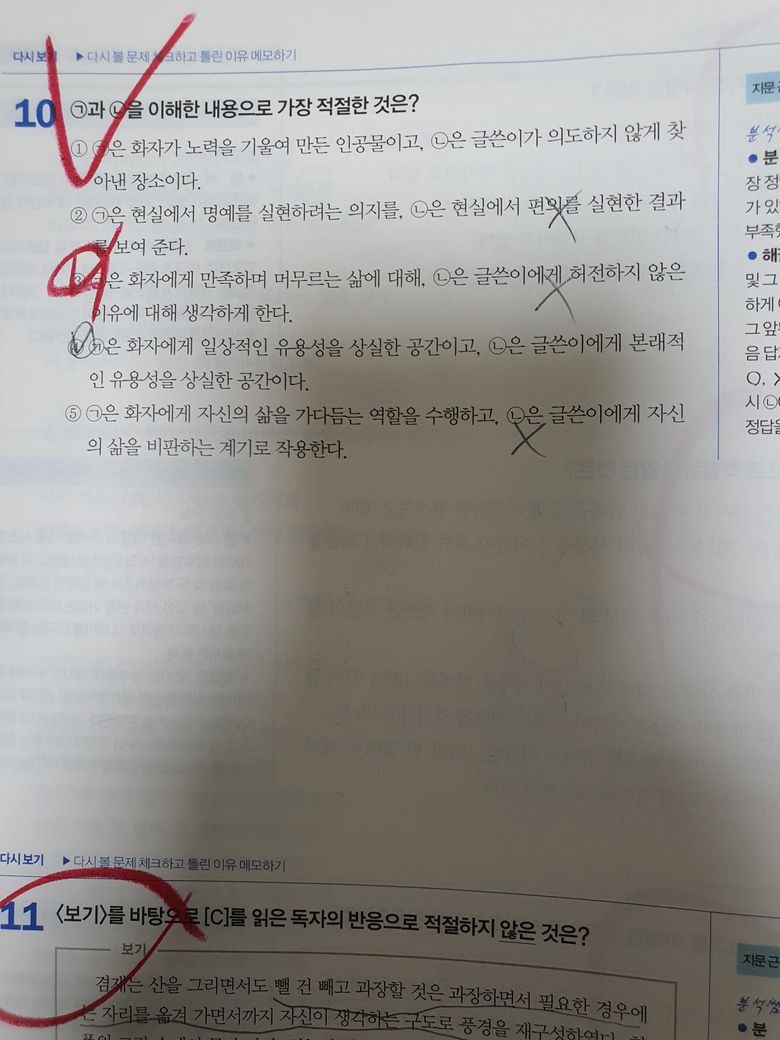 다시보기 ▶ 다시 볼 문제 체크하고 틀린 이유 메모하기
지문 근
10 ㉠과 ㉡을 이해한 내용으로 가장 적절한 것은?
① ㉠은 화자가 노력을 기울여 만든 인공물이고, ㉡은 글쓴이가 의도하지 않게 찾
아낸 장소이다.
② ㉠은 현실에서 명예를 실현하려는 의지를, ㉡은 현실에서 편의를 실현한 결과
를 보여 준다.
③ ㉠은 화자에게 만족하며 머무르는 삶에 대해, ㉡은 글쓴이에게 허전하지 않은
이유에 대해 생각하게 한다.
④ ㉠은 화자에게 일상적인 유용성을 상실한 공간이고, ㉡은 글쓴이에게 본래적
인 유용성을 상실한 공간이다.
⑤ ㉠은 화자에게 자신의 삶을 가다듬는 역할을 수행하고, ㉡은 글쓴이에게 자신
의 삶을 비판하는 계기로 작용한다.
분석
● 분
장 정
가 있
부족
● 해
및 그
하게
그 앞
음 답
O, X
시 ㉡
정답을
다시보기 ▶ 다시 볼 문제 체크하고 틀린 이유 메모하기
11 〈보기〉를 바탕으로 [C]를 읽은 독자의 반응으로 적절하지 않은 것은?
보기
겸재는 산을 그리면서도 뺄 건 빼고 과장할 것은 과장하면서 필요한 경우에
는 자리를 옮겨 가면서까지 자신이 생각하는 구도로 풍경을 재구성하였다.
지문 근
분석
● 분